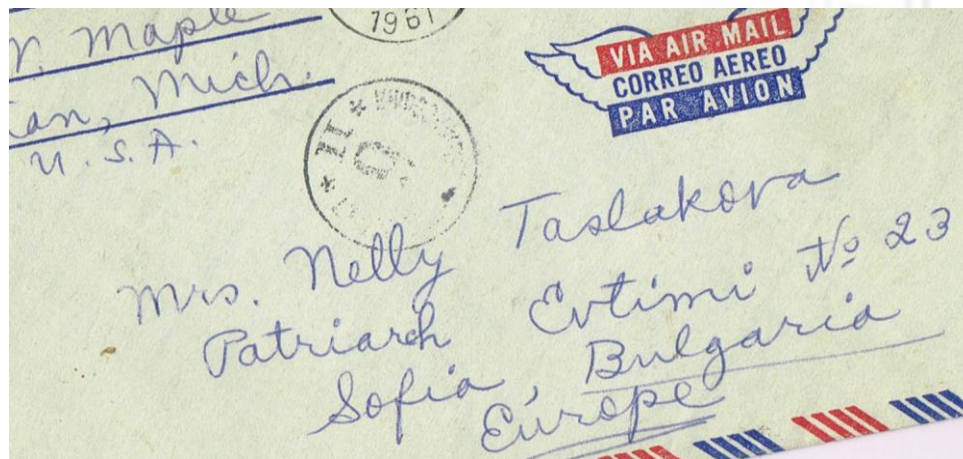 N. Maple
ian, Mich.
U. S. A.
1961
VIA AIR MAIL
CORREO AEREO
PAR AVION
Mrs. Nelly Taslakova
Patriarch Evtimi № 23
Sofia, Bulgaria
Europe